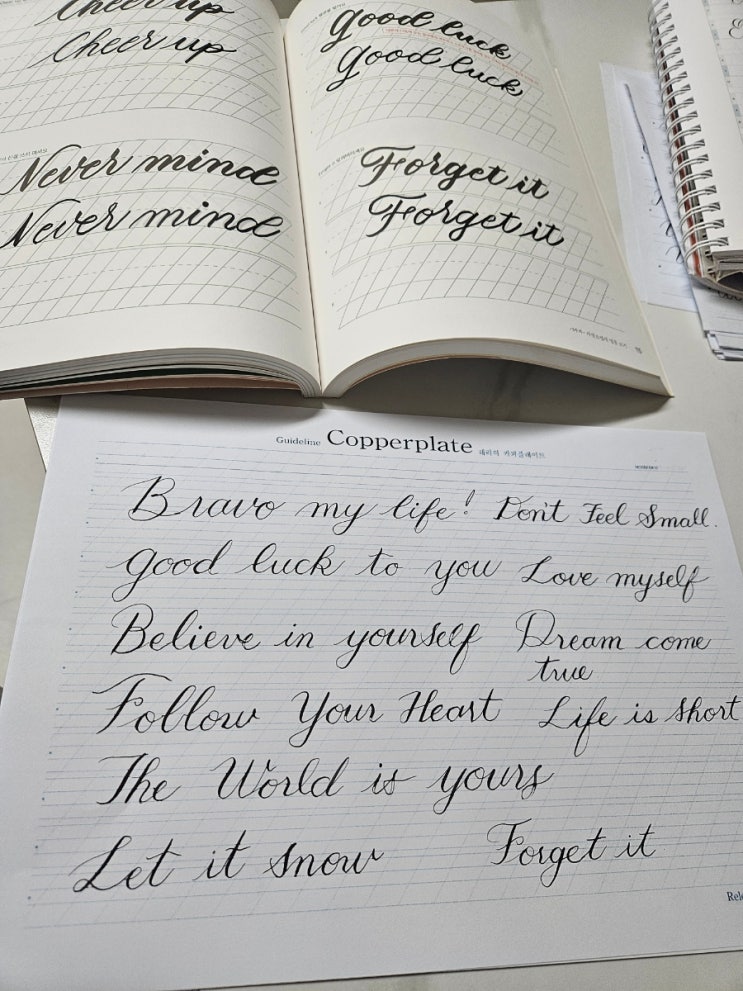 Cheer up
Cheer up
Never mind
Never mind
good luck
good luck
Forget it
Forget it
Guideline Copperplate
Bravo my life! Don't Feel Small.
good luck to you Love myself
Believe in yourself Dream come
true
Follow Your Heart Life is short
The World is yours
Let it snow Forget it